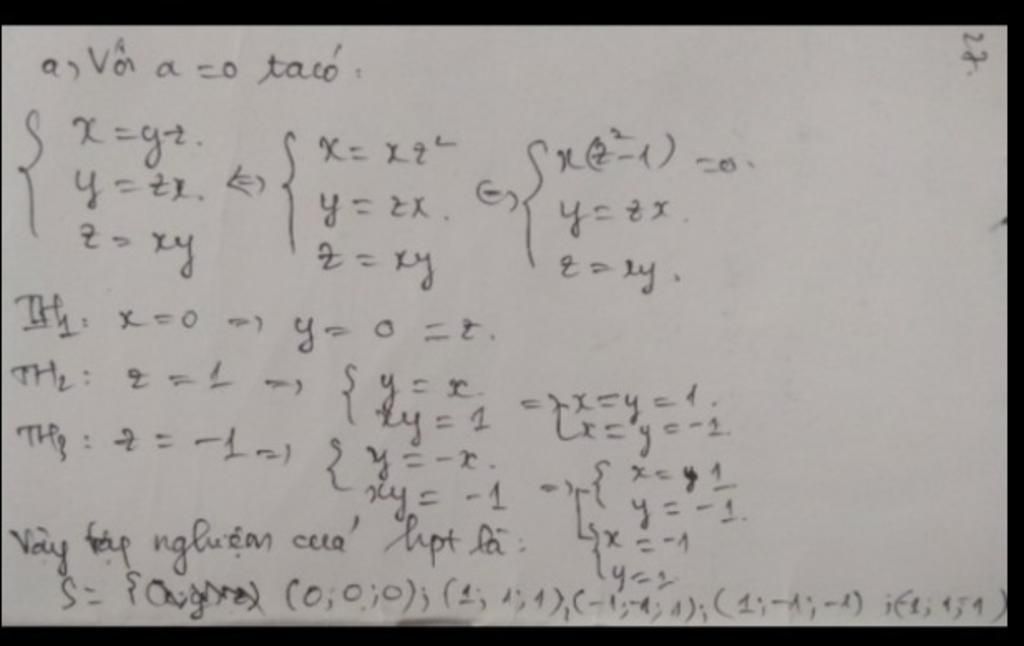 27.
a, Với a = 0 ta có:
{ x = yz. y = zx. z = xy ⇔ { x = xz² y = zx. z = xy ⇔ { x(z²-1) = 0. y = zx. z = xy.
TH1: x = 0 => y = 0 = z.
TH2: z = 1 => { y = x. xy = 1 => [ x = y = 1. x = y = -1.
TH3: z = -1 => { y = -x. xy = -1 => [ { x = 1 y = -1. { x = -1 y = 1
Vậy tập nghiệm của hpt là:
S = { (0;0;0); (1;1;1); (-1;-1;1); (1;-1;-1); (-1;1;-1)